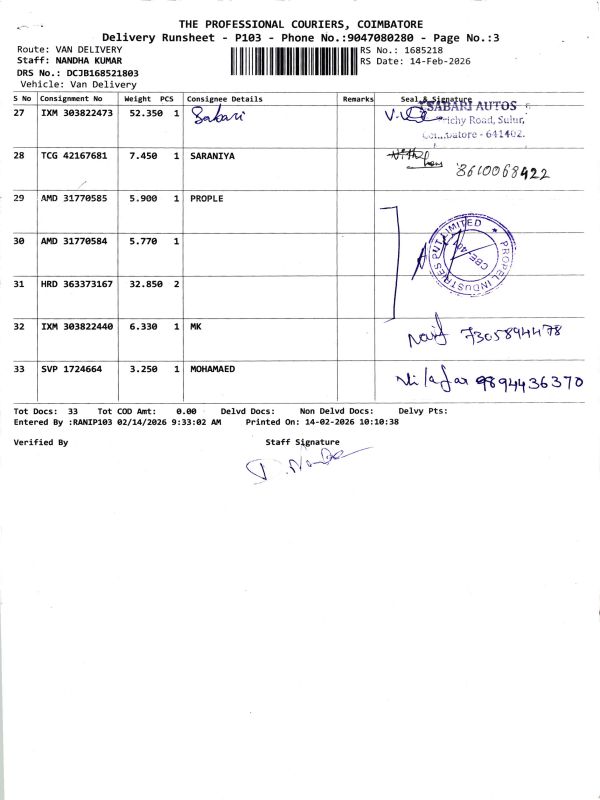 THE PROFESSIONAL COURIERS, COIMBATORE
Delivery Runsheet - P103 - Phone No.:9047080280 - Page No.:3
Route: VAN DELIVERY
RS No.: 1685218
Staff: NANDHA KUMAR
RS Date: 14-Feb-2026
DRS No.: DCJB168521803
Vehicle: Van Delivery
S No Consignment No Weight PCS Consignee Details Remarks Seal & Signature
27 IXM 303822473 52.350 1 Sabari
SABARI AUTOS
Trichy Road, Sulur,
Coimbatore - 641402.
28 TCG 42167681 7.450 1 SARANIYA 8610068422
29 AMD 31770585 5.900 1 PROPLE
30 AMD 31770584 5.770 1
PROPEL INDUSTRIES PVT LIMITED
31 HRD 363373167 32.850 2
32 IXM 303822440 6.330 1 MK 7305894478
33 SVP 1724664 3.250 1 MOHAMAED Nilafar 9894436370
Tot Docs: 33 Tot COD Amt: 0.00 Delvd Docs: Non Delvd Docs: Delvy Pts:
Entered By :RANIP103 02/14/2026 9:33:02 AM Printed On: 14-02-2026 10:10:38
Verified By Staff Signature